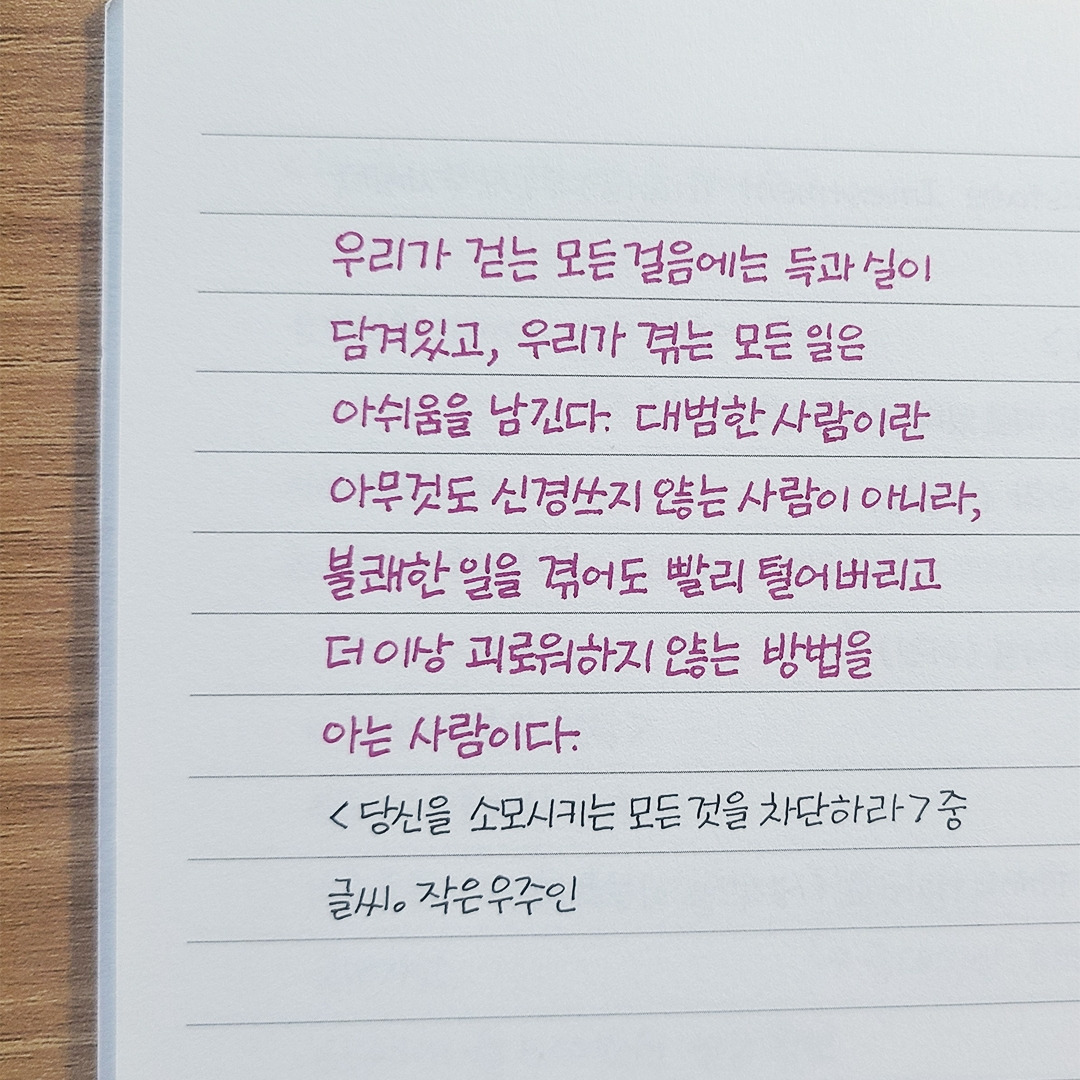 우리가 걷는 모든 걸음에는 득과 실이
담겨있고, 우리가 겪는 모든 일은
아쉬움을 남긴다. 대범한 사람이란
아무것도 신경쓰지 않는 사람이 아니라,
불쾌한 일을 겪어도 빨리 털어버리고
더 이상 괴로워하지 않는 방법을
아는 사람이다.
<당신을 소모시키는 모든 것을 차단하라> 중
글씨。작은우주인